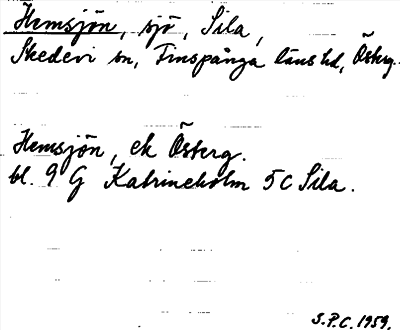 Hemsjön, sjö, Sila,
Skedevi sn, Finspånga läns hd, Österg.
Hemsjön, ek Österg.
bl. 9 G Katrineholm 5C Sila.
S.P.C. 1959.